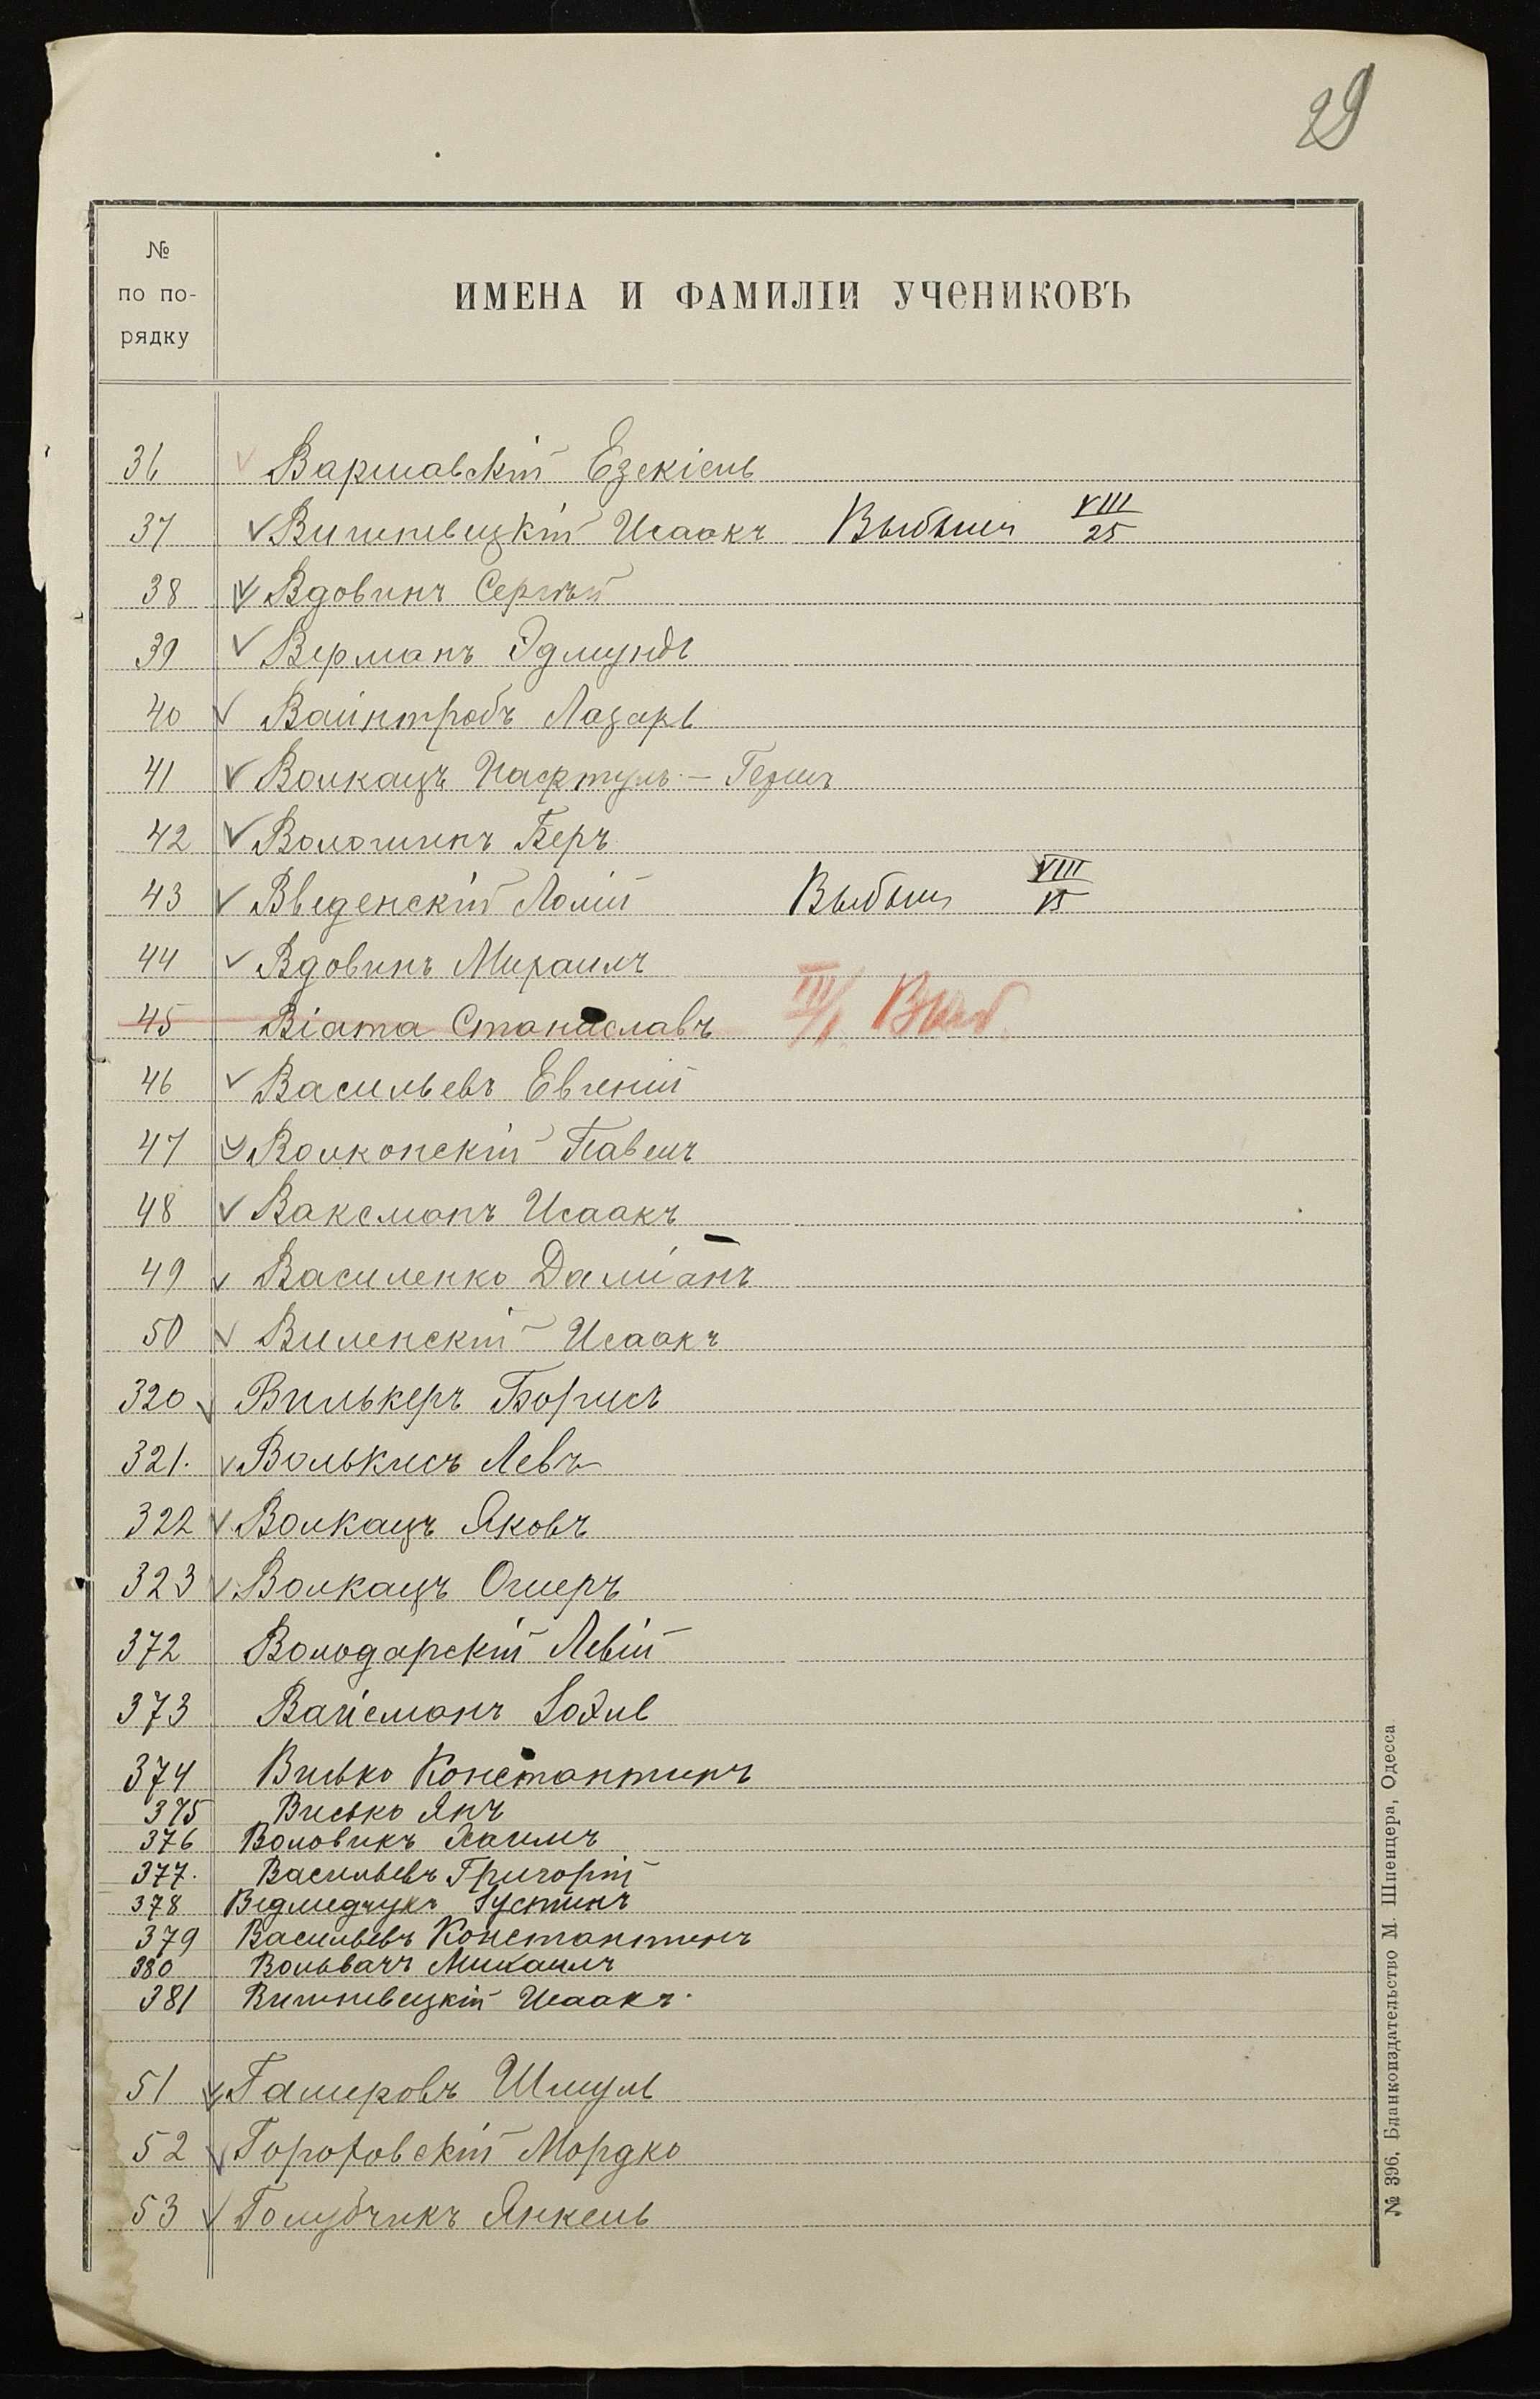 29
№
по по-
рядку
ИМЕНА И ФАМИЛІИ УЧЕНИКОВЪ
36 Варшавскій Езекіель
37 Вишневецкій Исаакъ Выбылъ VIII/25
38 Вдовинъ Сергѣй
39 Верманъ Эдмундъ
40 Вайнтробъ Лазарь
41 Волкацъ Нафтуль-Герш
42 Воложинъ Беръ
43 Введенскій Выбылъ VIII/15
44 Вдовинъ Михаилъ
45 Віата Станиславъ III/1 Выб.
46 Васильевъ Евгеній
47 Волконскій Павелъ
48 Ваксманъ Исаакъ
49 Василенко Даміанъ
50 Виленскій Исаакъ
320 Вилькеръ Борисъ
321. Волькисъ Левъ
322 Волкацъ Яковъ
323 Волкацъ Ошеръ
372 Володарскій Левій
373 Вайсманъ
374 Висько Константинъ
375 Висько Янъ
376 Воловикъ Хаимъ
377. Васильевъ Григорій
378 Ведмедчукъ Іустинъ
379 Васильевъ Константинъ
380 Вольвачъ Михаилъ
381 Вишневецкій Исаакъ.
51 Гамеровъ Шмуль
52 Гороховскій Мордко
53 Голубчикъ Янкель
№ 396. Бланкоиздательство М. Шпенцера, Одесса